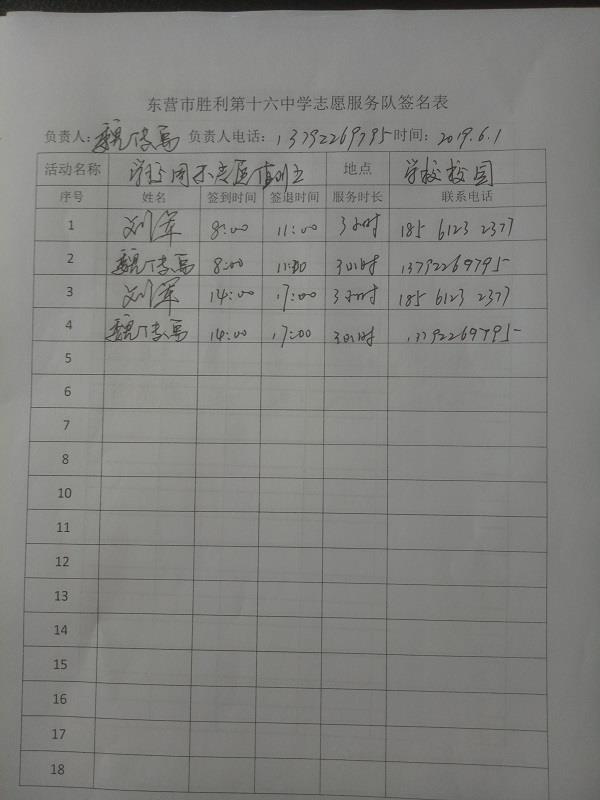 东营市胜利第十六中学志愿服务队签名表
负责人: 魏 负责人电话: 13792269795 时间: 2019.6.1
活动名称 学校周末志愿值班 地点 学校校园
序号 姓名 签到时间 签退时间 服务时长 联系电话
1 刘军 8:00 11:00 3小时 185 6123 2377
2 魏 8:00 11:00 3小时 13792269795
3 刘军 14:00 17:00 3小时 185 6123 2377
4 魏 14:00 17:00 3小时 13792269795
5
6
7
8
10
11
12
13
14
15
16
17
18